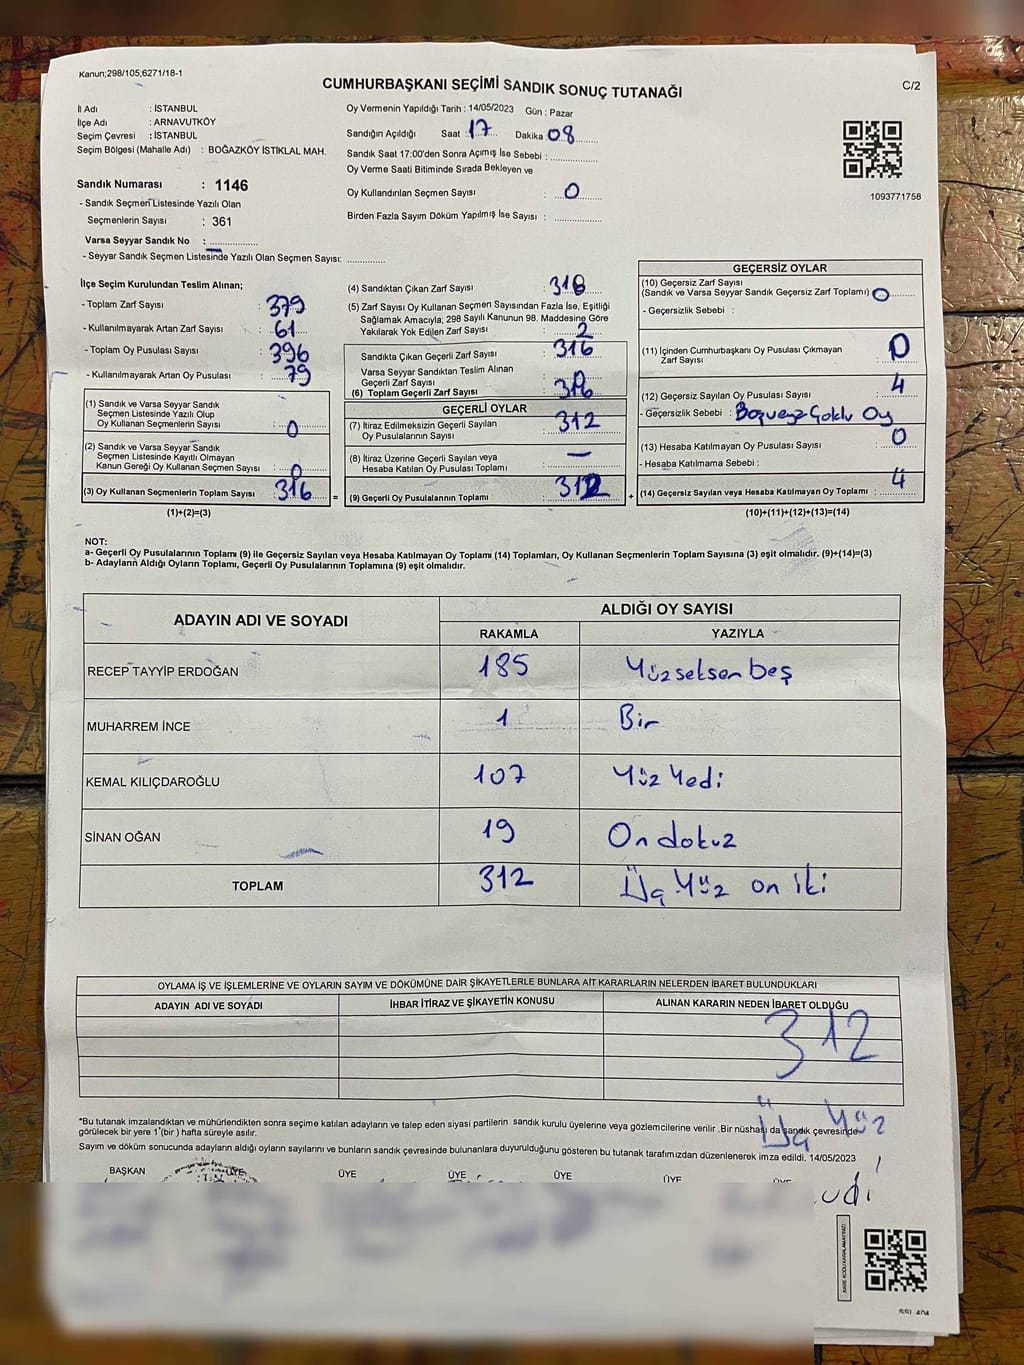 Kanun;298/105,6271/18-1
CUMHURBAŞKANI SEÇİMİ SANDIK SONUÇ TUTANAĞI
C/2
İl Adı : İSTANBUL
İlçe Adı : ARNAVUTKÖY
Seçim Çevresi : İSTANBUL
Seçim Bölgesi (Mahalle Adı) : BOĞAZKÖY İSTİKLAL MAH.
Sandık Numarası : 1146
- Sandık Seçmen Listesinde Yazılı Olan
Seçmenlerin Sayısı : 361
Varsa Seyyar Sandık No : ............
- Seyyar Sandık Seçmen Listesinde Yazılı Olan Seçmen Sayısı: ............
Oy Vermenin Yapıldığı Tarih : 14/05/2023 Gün : Pazar
Sandığın Açıldığı Saat : 17 Dakika 08
Sandık Saat 17:00'den Sonra Açımış İse Sebebi : ............
Oy Verme Saati Bitiminde Sırada Bekleyen ve
Oy Kullandırılan Seçmen Sayısı : 0
Birden Fazla Sayım Döküm Yapılmış İse Sayısı : ............
1093771758
İlçe Seçim Kurulundan Teslim Alınan;
- Toplam Zarf Sayısı : 379
- Kullanılmayarak Artan Zarf Sayısı : 61
- Toplam Oy Pusulası Sayısı : 396
- Kullanılmayarak Artan Oy Pusulası : 79
(1) Sandık ve Varsa Seyyar Sandık
Seçmen Listesinde Yazılı Olup
Oy Kullanan Seçmenlerin Sayısı : 0
(2) Sandık ve Varsa Seyyar Sandık
Seçmen Listesinde Kayıtlı Olmayan
Kanun Gereği Oy Kullanan Seçmen Sayısı : 0
(3) Oy Kullanan Seçmenlerin Toplam Sayısı : 316
(1)+(2)=(3)
=
(4) Sandıktan Çıkan Zarf Sayısı : 318
(5) Zarf Sayısı Oy Kullanan Seçmen Sayısından Fazla İse, Eşitliği
Sağlamak Amacıyla; 298 Sayılı Kanunun 98. Maddesine Göre
Yakılarak Yok Edilen Zarf Sayısı : 2
Sandıkta Çıkan Geçerli Zarf Sayısı : 316
Varsa Seyyar Sandıktan Teslim Alınan
Geçerli Zarf Sayısı :
(6) Toplam Geçerli Zarf Sayısı : 316
GEÇERLİ OYLAR
(7) İtiraz Edilmeksizin Geçerli Sayılan : 312
Oy Pusulalarının Sayısı
(8) İtiraz Üzerine Geçerli Sayılan veya : —
Hesaba Katılan Oy Pusulası Toplamı
(9) Geçerli Oy Pusulalarının Toplamı : 312
+
GEÇERSİZ OYLAR
(10) Geçersiz Zarf Sayısı
(Sandık ve Varsa Seyyar Sandık Geçersiz Zarf Toplamı) : 0
- Geçersizlik Sebebi :
(11) İçinden Cumhurbaşkanı Oy Pusulası Çıkmayan
Zarf Sayısı : 0
(12) Geçersiz Sayılan Oy Pusulası Sayısı : 4
- Geçersizlik Sebebi : Boşveya Çoklu Oy
(13) Hesaba Katılmayan Oy Pusulası Sayısı : 0
- Hesaba Katılmama Sebebi :
(14) Geçersiz Sayılan veya Hesaba Katılmayan Oy Toplamı : 4
(10)+(11)+(12)+(13)=(14)
NOT:
a- Geçerli Oy Pusulalarının Toplamı (9) ile Geçersiz Sayılan veya Hesaba Katılmayan Oy Toplamı (14) Toplamları, Oy Kullanan Seçmenlerin Toplam Sayısına (3) eşit olmalıdır. (9)+(14)=(3)
b- Adayların Aldığı Oyların Toplamı, Geçerli Oy Pusulalarının Toplamına (9) eşit olmalıdır.
ADAYIN ADI VE SOYADI ALDIĞI OY SAYISI
RAKAMLA YAZIYLA
RECEP TAYYİP ERDOĞAN 185 Yüzseksen beş
MUHARREM İNCE 1 Bir
KEMAL KILIÇDAROĞLU 107 Yüz Yedi
SİNAN OĞAN 19 On dokuz
TOPLAM 312 Üç Yüz on iki
OYLAMA İŞ VE İŞLEMLERİNE VE OYLARIN SAYIM VE DÖKÜMÜNE DAİR ŞİKAYETLERLE BUNLARA AİT KARARLARIN NELERDEN İBARET BULUNDUKLARI
ADAYIN ADI VE SOYADI İHBAR İTİRAZ VE ŞİKAYETİN KONUSU ALINAN KARARIN NEDEN İBARET OLDUĞU
312
*Bu tutanak imzalandıktan ve mühürlendikten sonra seçime katılan adayların ve talep eden siyasi partilerin sandık kurulu üyelerine veya gözlemcilerine verilir .Bir nüshası da sandık çevresinde
görülecek bir yere 1 (bir ) hafta süreyle asılır.
Üç Yüz
Sayım ve döküm sonucunda adayların aldığı oyların sayılarını ve bunların sandık çevresinde bulunanlara duyurulduğunu gösteren bu tutanak tarafımızdan düzenlenerek imza edildi. 14/05/2023
BAŞKAN ÜYE ÜYE ÜYE ÜYE ÜYE